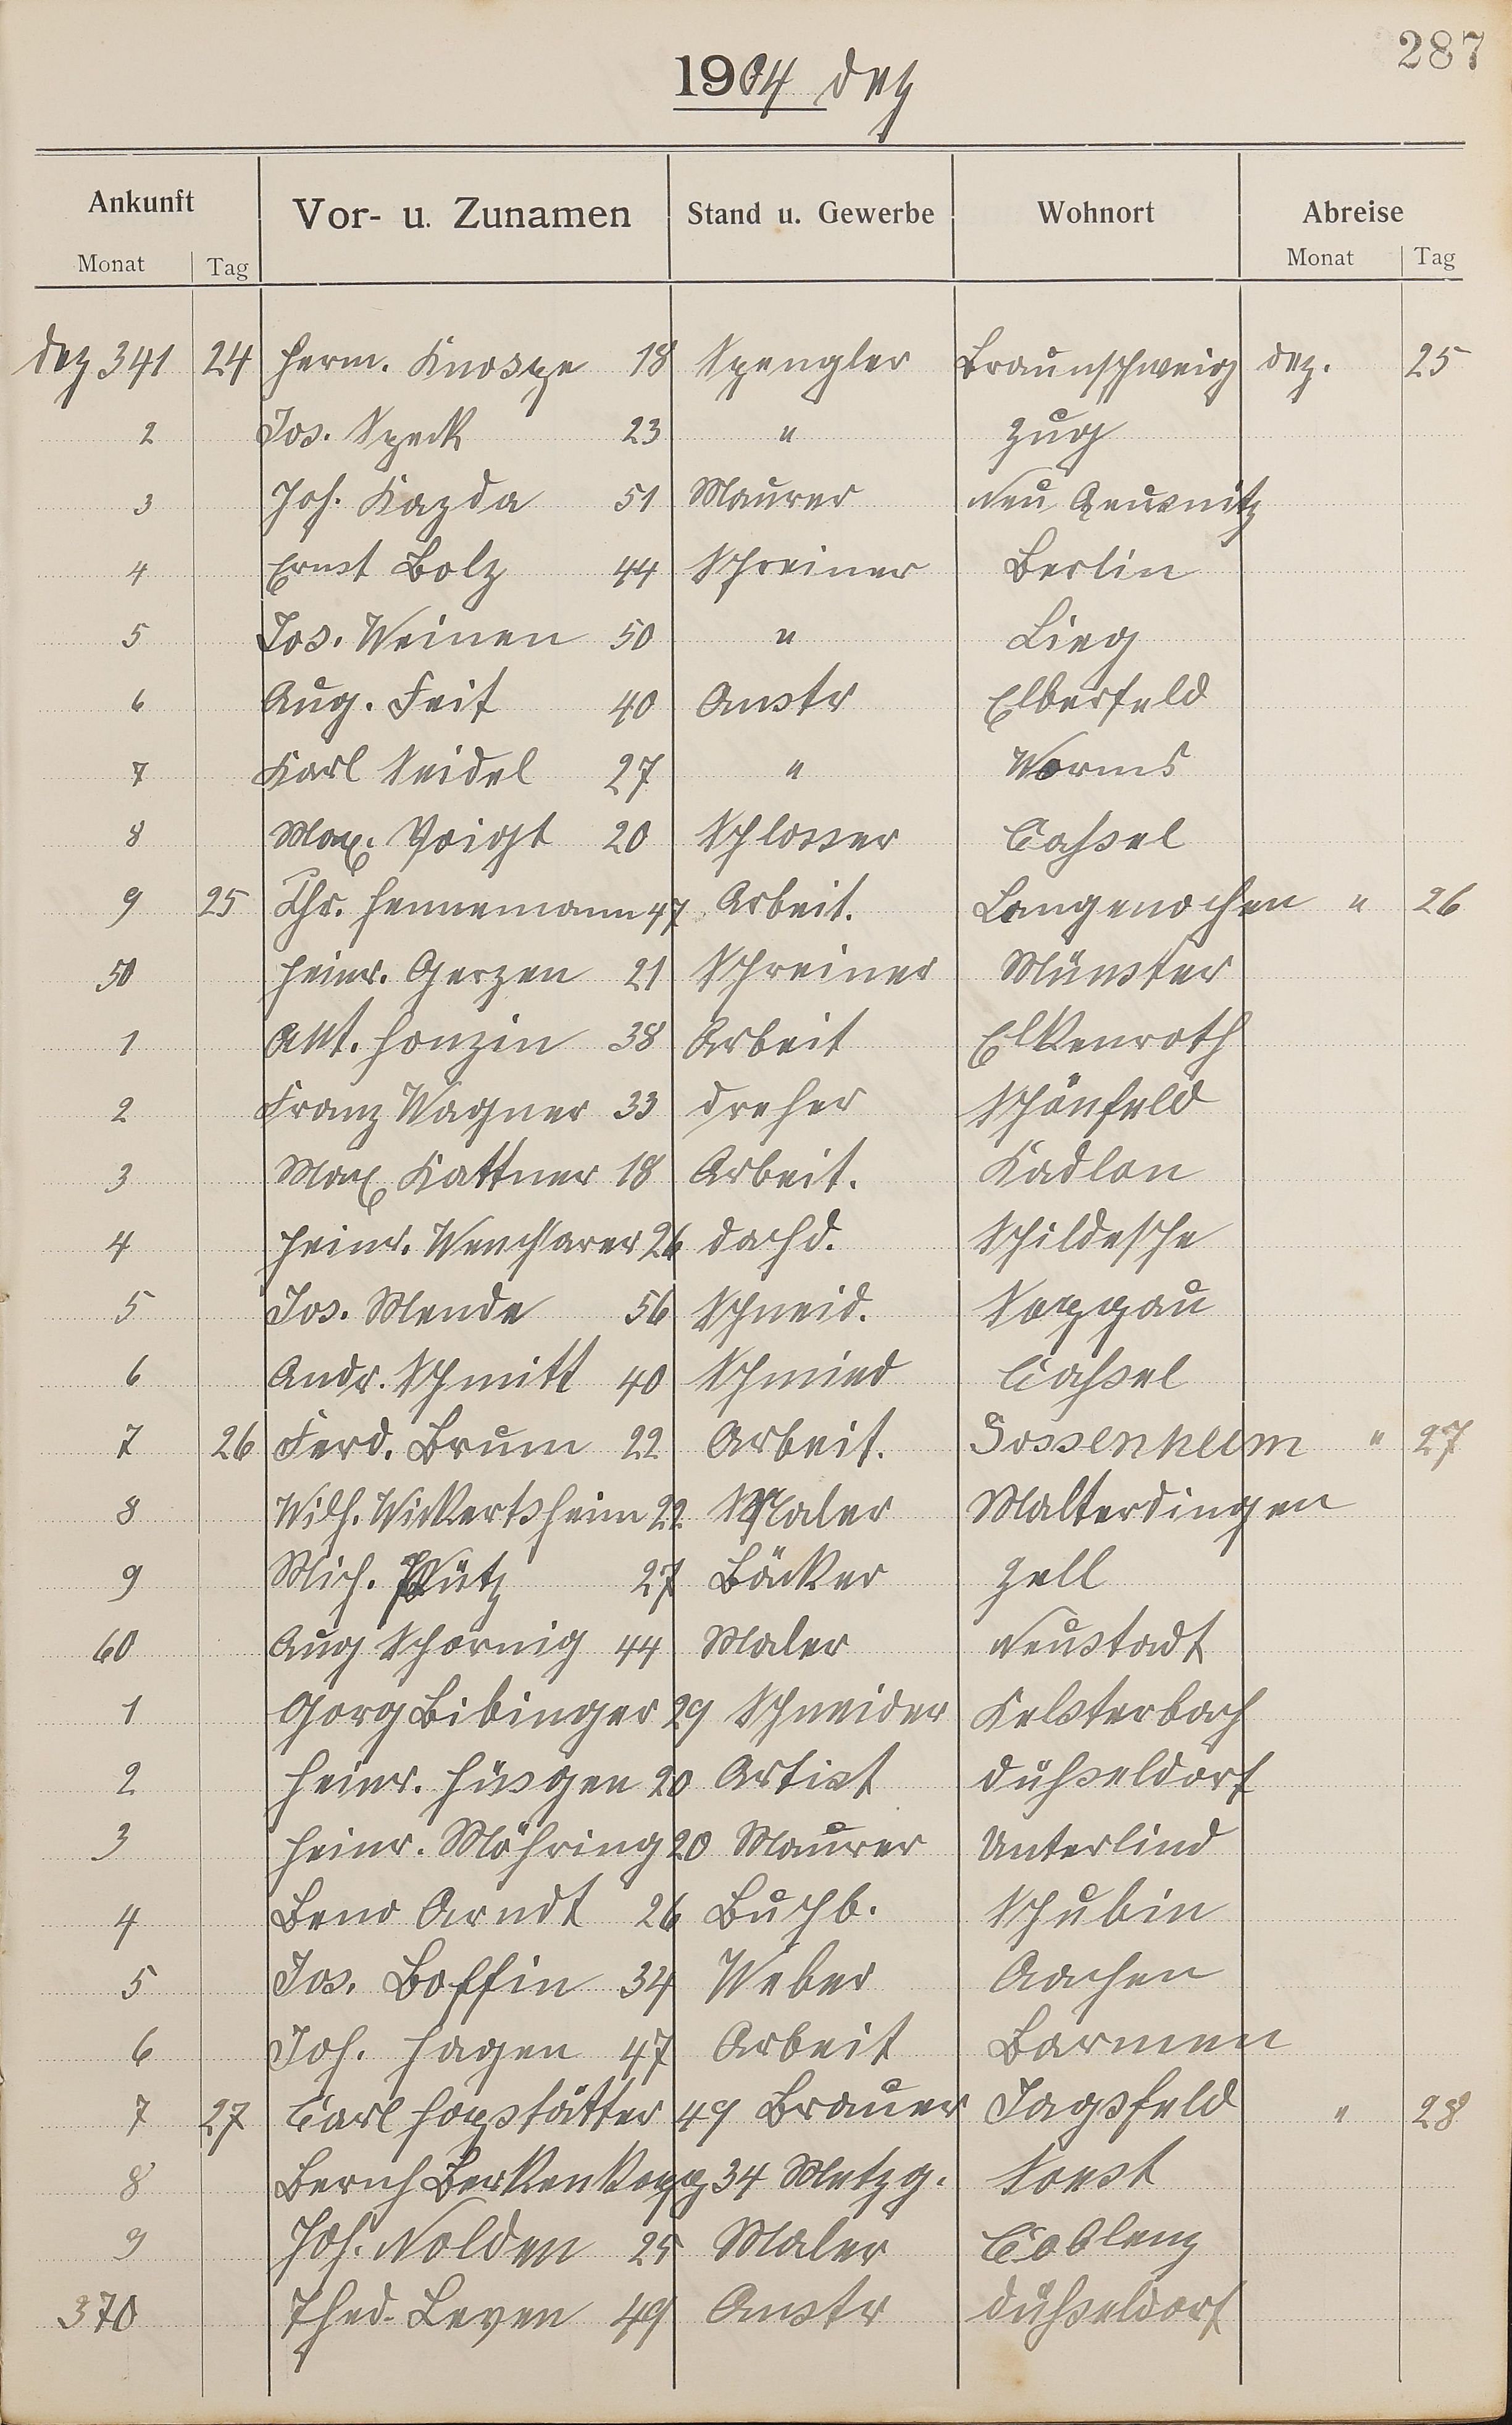 287
1904 Dez
Ankunft Vor- u. Zunamen Stand u. Gewerbe Wohnort Abreise
Monat Tag Monat Tag
Dez 341 24 Herm. Knospe 18 Spengler Braunschweig Dez. 25
2 Jos. Speck 23 " Zug
3 Joh. Kazda 51 Maurer Neu
4 Ernst Bolz 44 Schreiner Berlin
5 Jos. Weinen 50 " Lieg
6 Aug. Feit 40 Anstr Elberfeld
7 Karl Seidel 27 " Worms
8 Max. Voigt 20 Schlosser Cassel
9 25 Chr. Hennemann 47 Arbeit. Langenochen " 26
50 Heinr. Gerzen 21 Schreiner Münster
1 Ant. Honzin 38 Arbeit Elkenroth
2 Franz Wagner 33 Dreher Schönfeld
3 Max Kattner 18 Arbeit. Kadlon
4 Heinr. 26 Dachd. Schildesche
5 Jos. Mende 56 Schneid. Soppau
6 Andr. Schmitt 40 Schmied Cassel
7 26 Ferd. Brum 22 Arbeit. Sossenheim " 27
8 Wilh. Wickertsheim 22 Maler Malterdingen
9 Mich. 27 Bäcker Zell
60 Aug Schornig 44 Maler Neustadt
1 Gorg Bibinger 29 Schneider Kelsterbach
2 Heinr. Hüsgen 20 Artist Düsseldorf
3 Heinr. Möhring 20 Maurer Unterlind
4 Beno Arndt 26 Buchb. Schubin
5 Jos. Boffin 34 Weber Aachen
6 Joh. Hagen 47 Arbeit Barmen
7 27 Carl Hopstätter 49 Brauer Jagsfeld " 28
8 Bernh Berkenkopp 34 Metzg. Soest
9 Joh. Nolden 25 Maler Coblenz
370 Thed. Leven 49 Anstr Düsseldorf